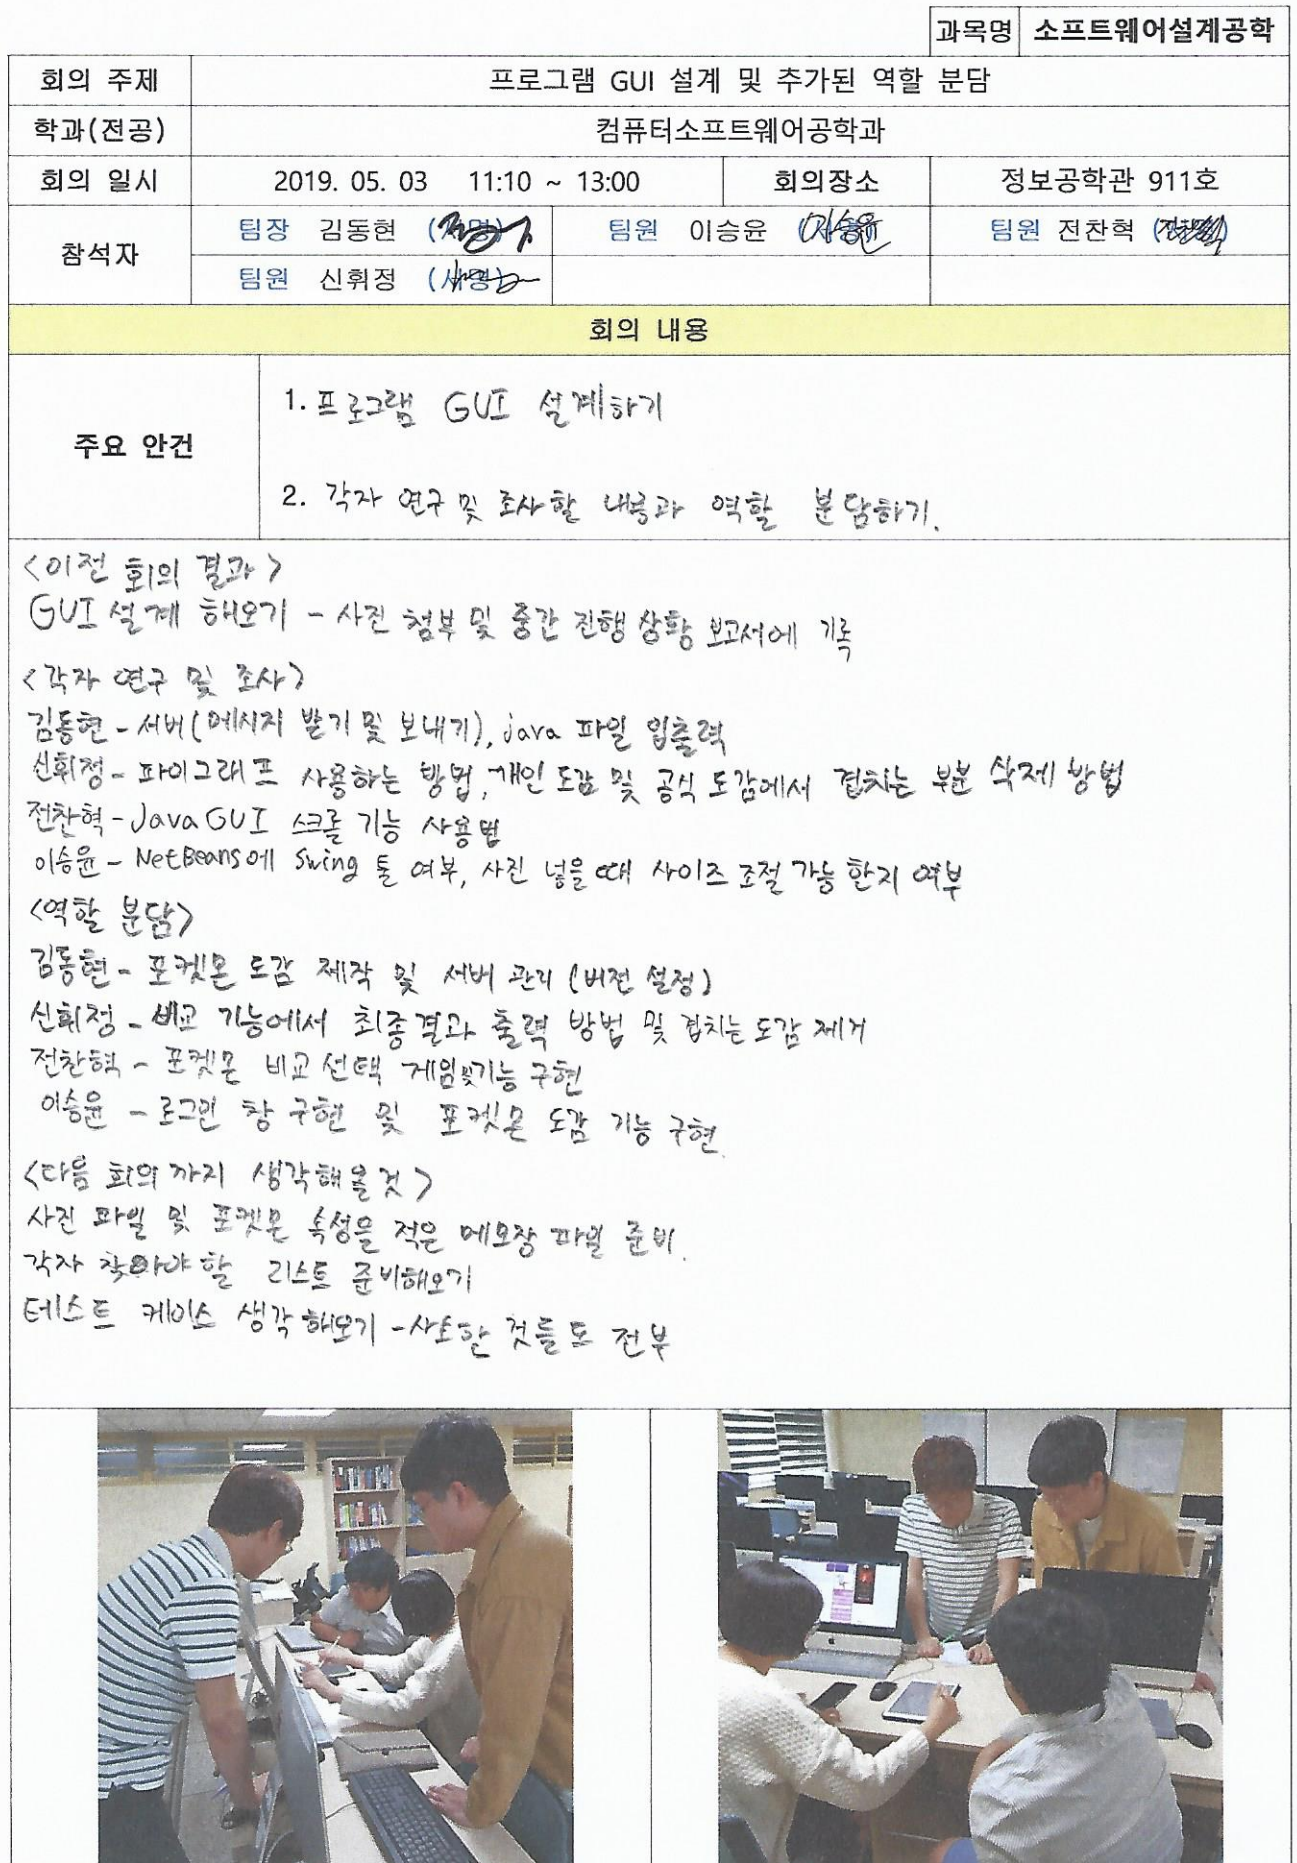 과목명 소프트웨어설계공학
회의 주제 프로그램 GUI 설계 및 추가된 역할 분담
학과(전공) 컴퓨터소프트웨어공학과
회의 일시 2019. 05. 03 11:10 ~ 13:00 회의장소 정보공학관 911호
참석자 팀장 김동현 (서명) 팀원 이승윤 (서명) 이승윤 팀원 전찬혁 (서명) 전찬혁
팀원 신휘정 (서명)
회의 내용
주요 안건
1. 프로그램 GUI 설계하기
2. 각자 연구 및 조사할 내용과 역할 분담하기.
<이전 회의 결과>
GUI 설계 해오기 - 사진 첨부 및 중간 진행 상황 보고서에 기록
<각자 연구 및 조사>
김동현 - 서버(메시지 받기 및 보내기), java 파일 입출력
신휘정 - 파이그래프 사용하는 방법, 개인 도감 및 공식 도감에서 겹치는 부분 삭제 방법
전찬혁 - Java GUI 스크롤 기능 사용법
이승윤 - NetBeans에 Swing 툴 여부, 사진 넣을 때 사이즈 조절 가능 한지 여부
<역할 분담>
김동현 - 포켓몬 도감 제작 및 서버 관리 (버전 설정)
신휘정 - 비교 기능에서 최종결과 출력 방법 및 겹치는 도감 제거
전찬혁 - 포켓몬 비교 선택 게임 및 기능 구현
이승윤 - 로그인 창 구현 및 포켓몬 도감 기능 구현.
<다음 회의 까지 생각해 올 것>
사진 파일 및 포켓몬 속성을 적은 메모장 파일 준비.
각자 찾아야 할 리스트 준비해오기
테스트 케이스 생각 해오기 - 사소한 것들도 전부